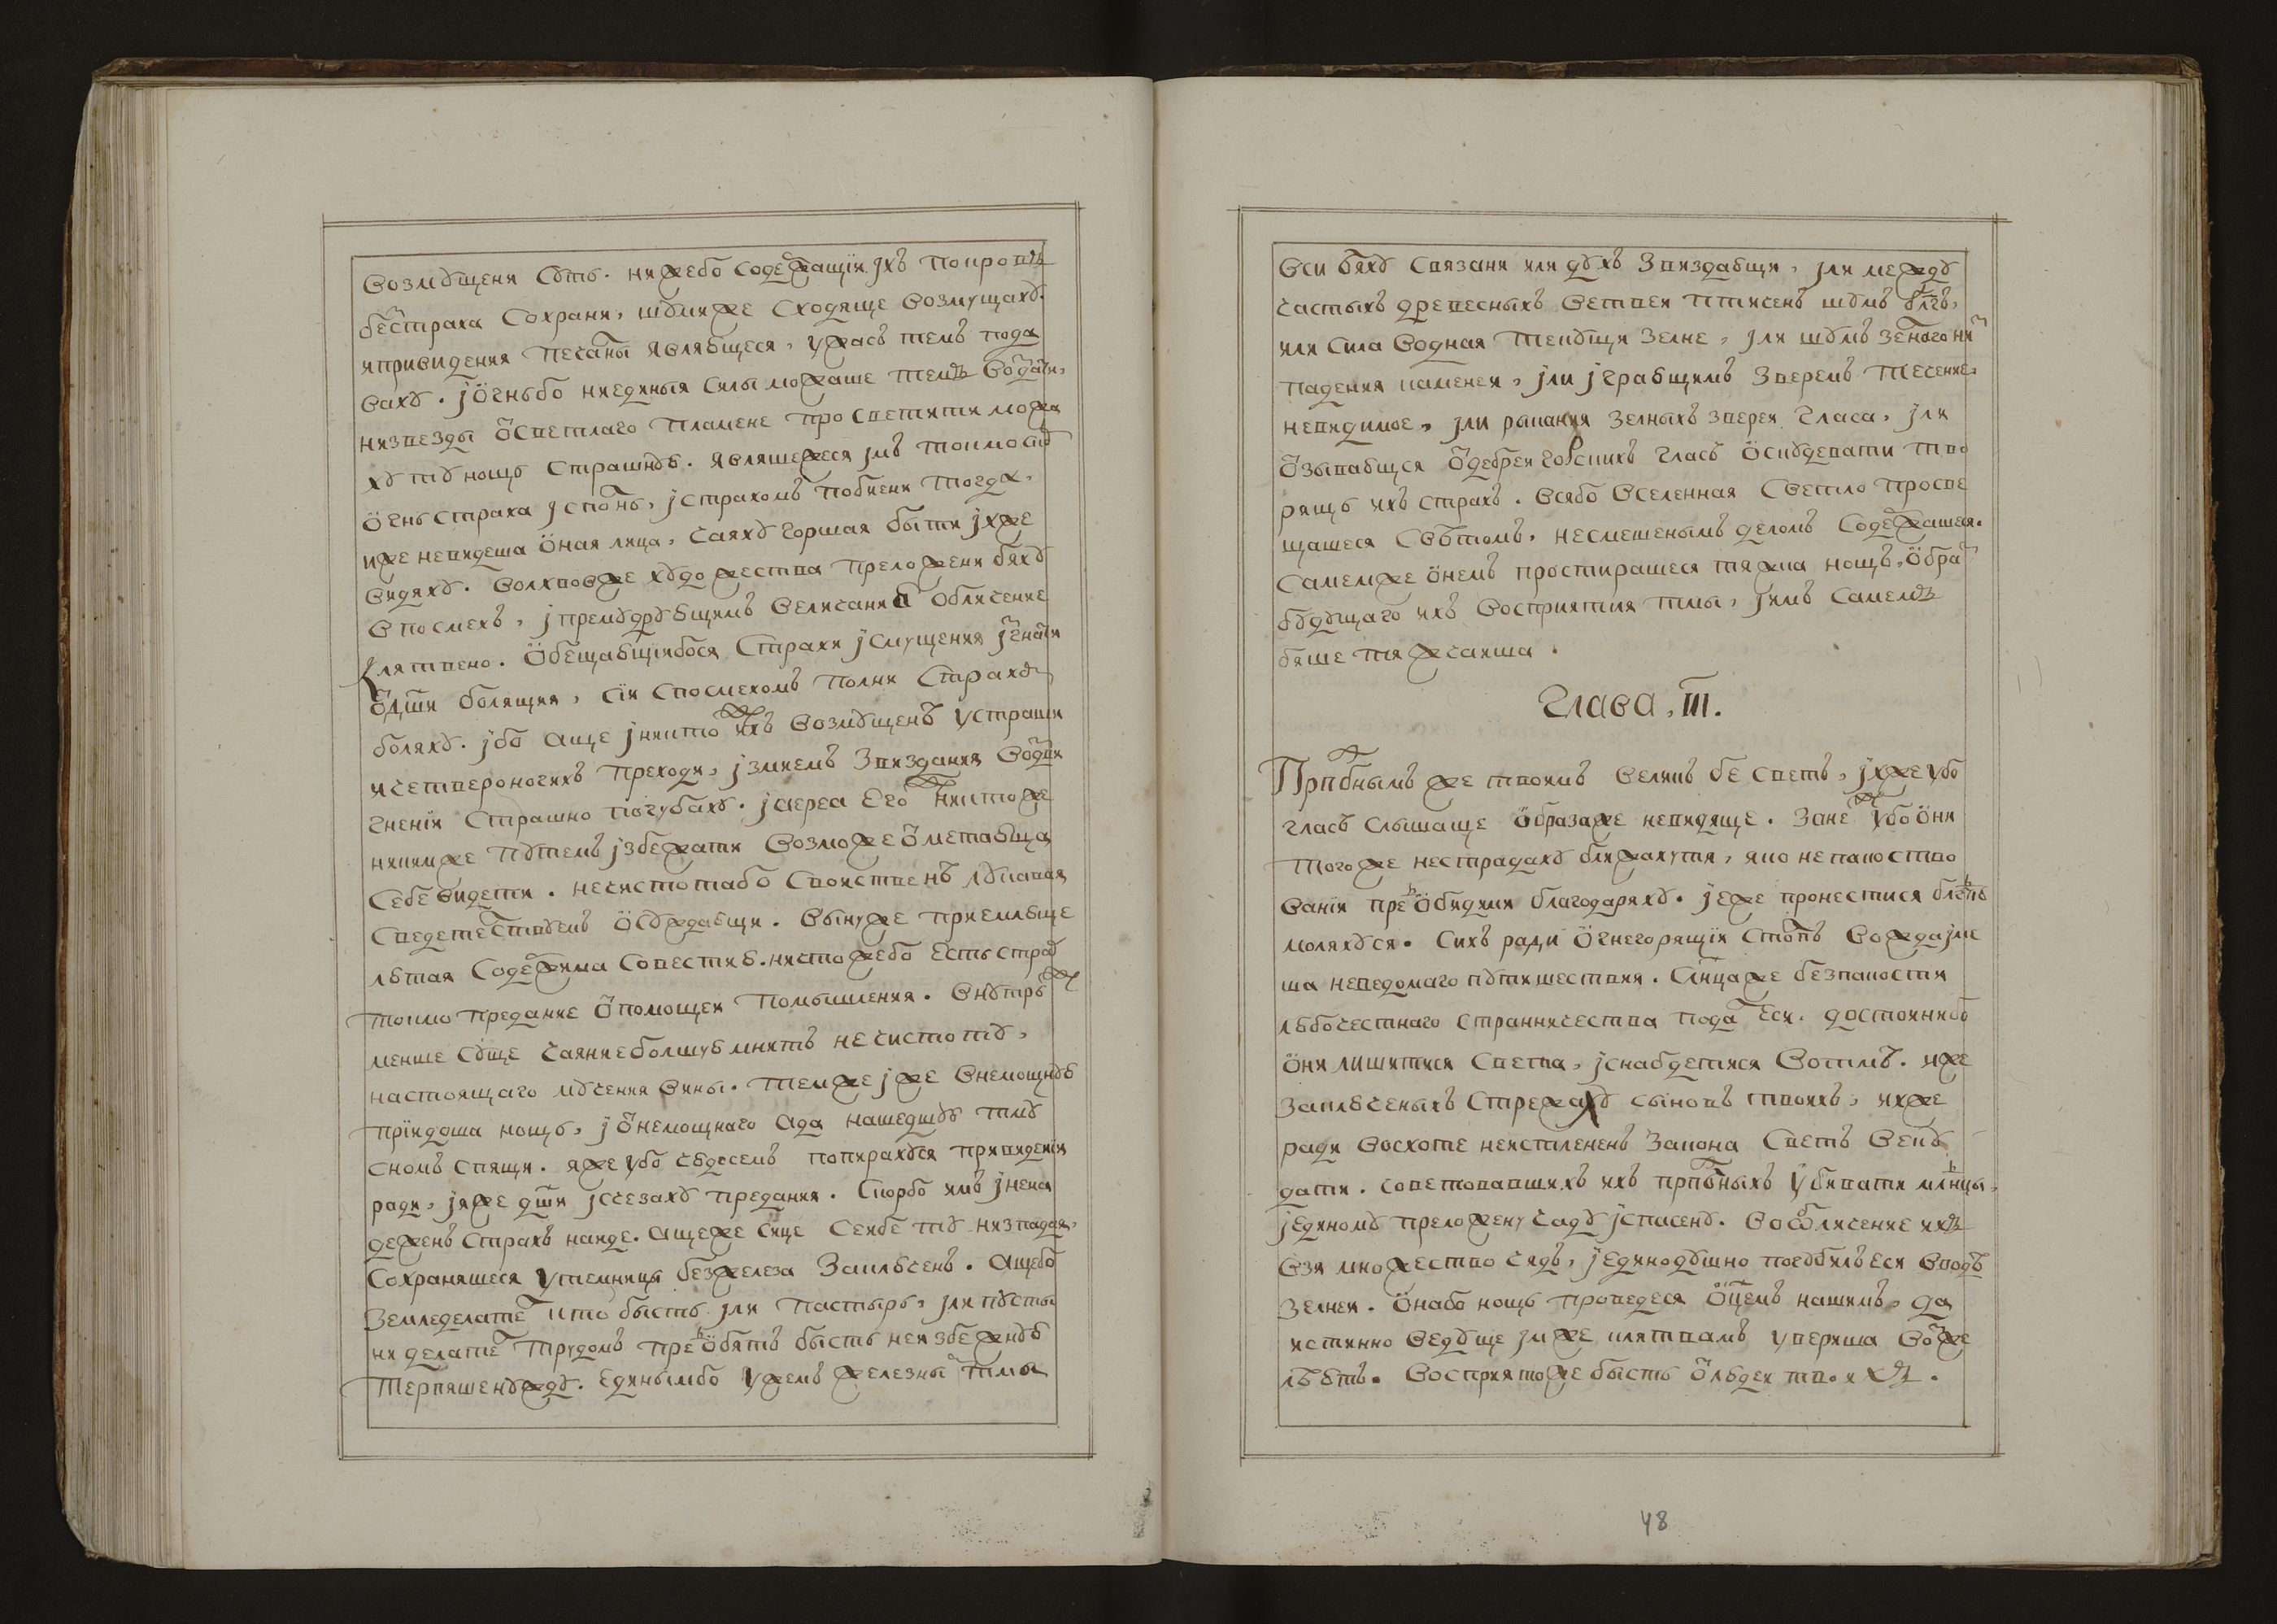 возмꙋщени сꙋть. нижебо содержащїи ихъ покровъ
бестраха сохрани, шꙋмиже сходяще возмущахꙋ.
ипривидения печалны являющеся, ужасъ темъ пода
вахꙋ. и огньбо ниединыя силы можаше темъ водати,
низвезды ѿсветлаго пламене просветити можа
хꙋ тꙋ нощь страшнꙋю. являшежеся имъ токмотꙋ
огнь страха исполнь, и страхомъ побиени тогда,
иже невидеша оная лица, чаяхꙋ горшая быти ихже
видяхꙋ. волхвовже хꙋдожества преложени бяхꙋ
впосмехъ, и премꙋдрꙋющимъ величанию обличение
клятвено. обещающїибося страхи и смущения изгнати
ѿдши болящия, сїи спосмехомъ полни страхꙋ
боляхꙋ. ибо аще и никтоже ихъ возмꙋщенъ устраши
и четвероногихъ преходи, и змиемъ звиздания водви
гненїи страшно погубахꙋ. и аера его никтоже
никимже пꙋтемъ избежати возможе ѿметающа
себе видети. нечистотабо свойственъ лꙋкавая
сведетелствꙋемъ осꙋждающи. вынуже приемлюще
лютая содержима совестию. ничтожебо есть страх
токмо предание ѿпомощей помышления. внꙋтрь же
менше сꙋще чаяние болшую мнитъ нечистотꙋ,
настоящаго мꙋчения вины. темже иже внемощнꙋю
прїидоша нощь, и ѿнемощнаго ада нашедшꙋю тмꙋ
сномъ спящи. яже убо чюдесемъ попирахꙋся привидения
ради, и яже дши исчезахꙋ предания. скорбо имъ и нена
деженъ страхъ найде. ащеже сице сеюбе тꙋ низпадая,
сохраняшеся утемницы безжелеза заключенъ. ащебо
земледелатель кто бысть или пастырь, или пꙋсты
ни делатель трудомъ преобятъ бысть неизбежнꙋю
терпяше нꙋждꙋ. единымбо ужемъ железным тмы
вси бяхꙋ связани или дꙋхъ звиздающи, или междꙋ
частыхъ древесныхъ ветвей птичень шꙋмъ благъ,
или сила водная текꙋщи зелне, или шꙋмъ зелнаго ни
падения каменей, или играющимъ зверемъ течение
невидимое, или рыкания зелныхъ зверей гласа, или
ѿзывающся ѿдебрей горскихъ гласъ оскꙋдевати тво
рящь ихъ страхъ. всябо вселенная светло просве
щашеся светомъ, несмешенымъ деломъ содержашеся.
самемже онемъ простирашеся тяжка нощъ, образ
бꙋдущаго ихъ восприятия тмы, и имъ самемъ
бяше тяжчайша.
Глава, III.
Прпбнымъ же твоимъ велик бе светъ, ихже убо
гласъ слышаще образаже невидяще. зане же убо они
тогоже нестрадахꙋ блажахути, яко непакоство
ванїи преобидими благодаряхꙋ. и еже пронестися блгть
моляхꙋся. сихъ ради огнегорящїи столпъ вождаиме
ша неведомаго пꙋтишествия. слнцаже безпакостия
любочестнаго странничества подал еси. достойнибо
они лишитися света, и снабдетися вотмѣ. иже
заключеныхъ стрежахꙋ сыновъ твоихъ, ихже
ради восхоте неистлененъ закона светъ векꙋ
дати. советовавшихъ ихъ прпбныхъ убивати млнцы,
и единомꙋ преложену чадꙋ и спасенꙋ. вообличение ихъ
взя множество чадъ, и единодꙋшно погꙋбилъ еси вводѣ
зелней. онабо нощь проведеся отцемъ нашимъ, да
истинно ведꙋще имже клятвамъ увериша вѡ же
любятъ. восприятоже бысть ѿлюдей твоихъ.
48